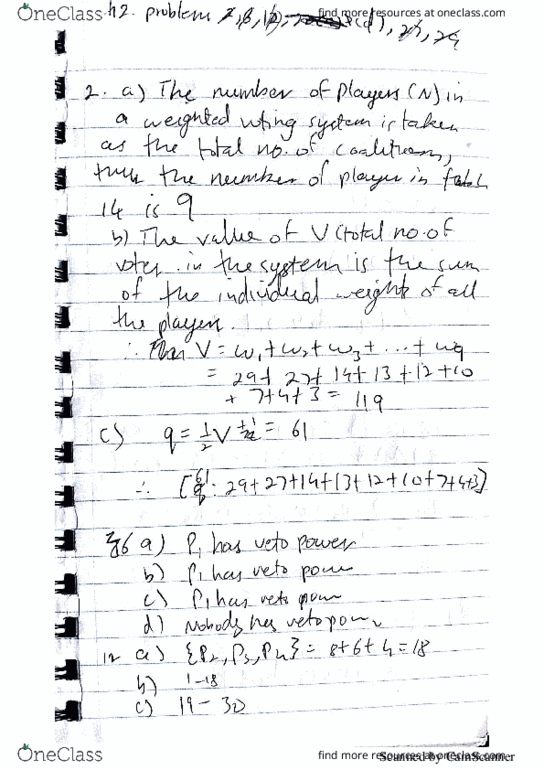 OneClass
find more resources at oneclass.com
h2. problem
2. a) The number of players (N) in
a weighted voting system is taken
as the total no. of coalitions,
thus the number of player in
14 is 9
b) The value of V (total no. of
votes in the system is the sum
of the individual weights of all
the players.
∴ Then V = w1 + w2 + w3 + ... + w9
= 29 + 27 + 14 + 13 + 12 + 10
+ 7 + 4 + 3 = 119
c) q = 1/2 V = 61
∴ [61: 29+27+14+13+12+10+7+4+3]
6 a) P1 has veto power
b) P1 has veto power
c) P1 has veto power
d) Nobody has veto power
12 a) {P2, P3, P4} = 8+6+4=18
b) 1-18
c) 19-30
OneClass
find more resources at oneclass.com
Scanned by CamScanner